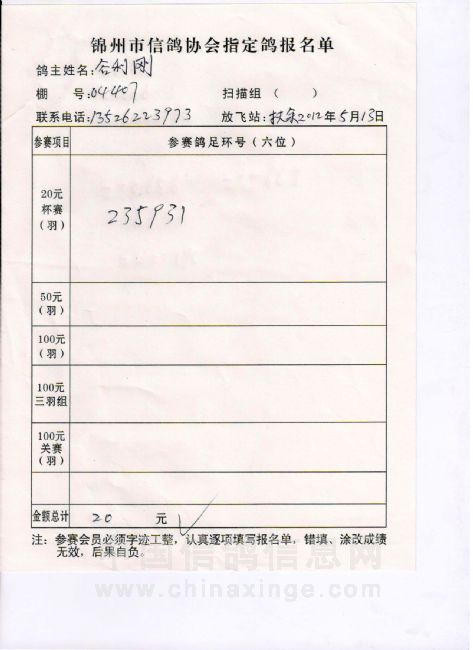 锦州市信鸽协会指定鸽报名单
鸽主姓名:谷利刚
棚 号:04407 扫描组 ( )
联系电话:13526223973 放飞站: 2012年5月13日
参赛项目 参赛鸽足环号(六位)
20元
杯赛
(羽)
235931
50元
(羽)
100元
(羽)
100元
三羽组
100元
关赛
(羽)
金额总计 20 元
注:参赛会员必须字迹工整,认真逐项填写报名单,错填、涂改成绩
无效,后果自负。
中国信鸽信息网
www.chinaxinge.com